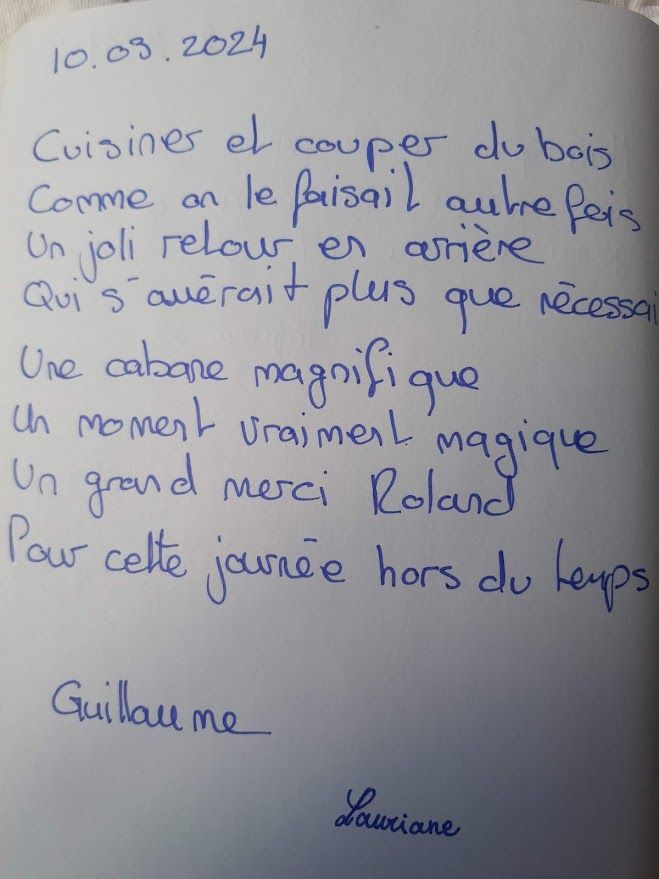 10.03.2024
Cuisiner et couper du bois
Comme on le faisait autrefois
Un joli retour en arrière
Qui s'avérait plus que nécessai
Une cabane magnifique
Un moment vraiment magique
Un grand merci Roland
Pour cette journée hors du temps
Guillaume
Lauriane